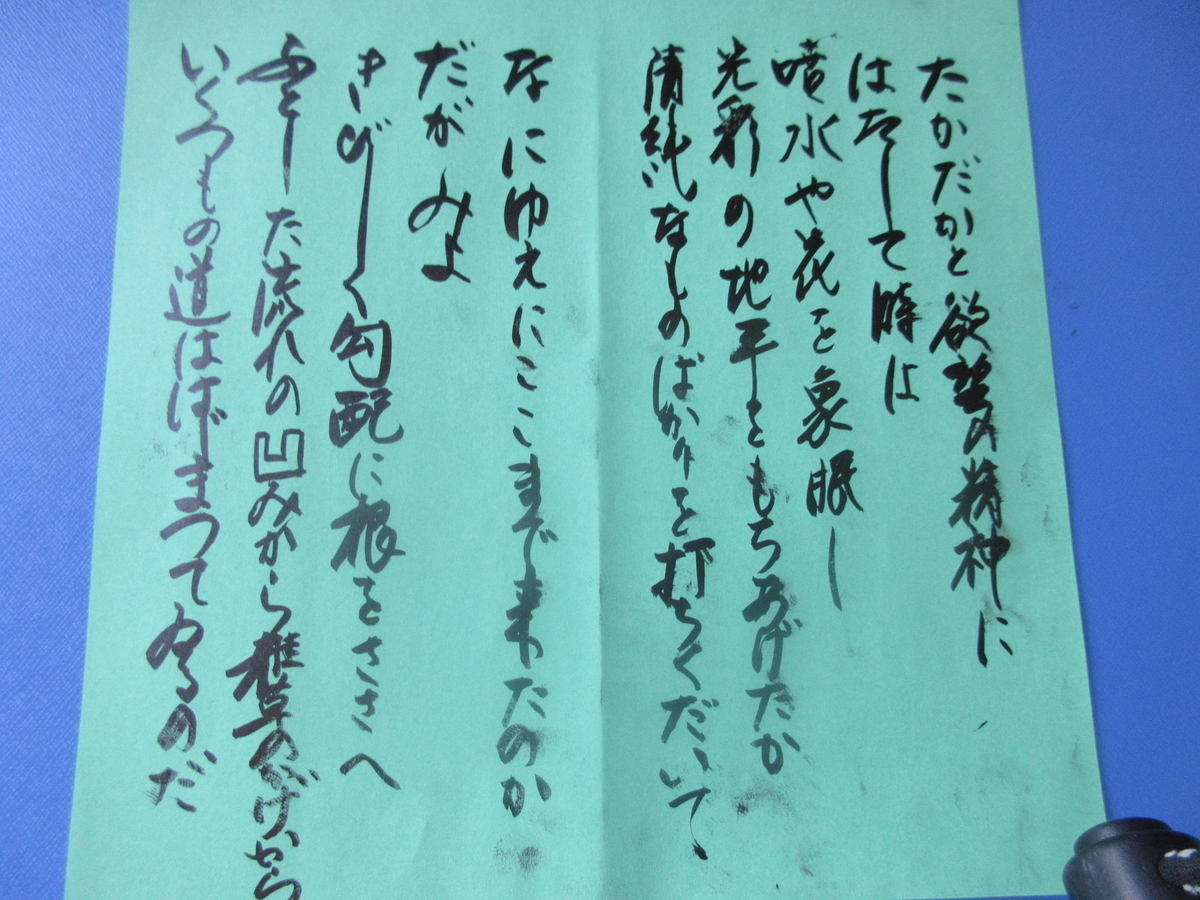 たかだかと欲望の精神に
はたして時は
噴水や花を象眼し
光彩の地平をもちあげたか
清純なものばかりを打ちくだいて
なにゆえにここまで来たのか
だがみよ
きびしく勾配に根をささへ
ふとした流れの凹みから雑草のかげから
いくつもの道ははじまつてゐるのだ